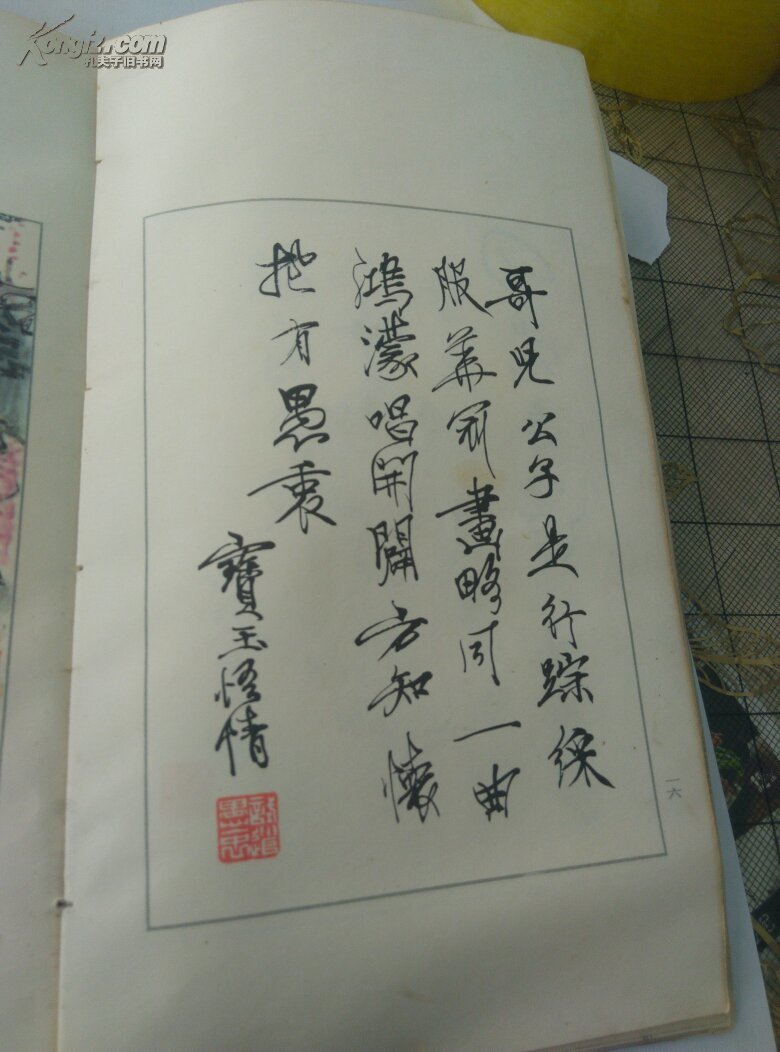 哥兒公子是行踪綵
服華冠畫略同一曲
鴻濛唱開闢方知懷
抱有愚衷
寶玉悟情
一六
Kongfz.com
孔夫子旧书网